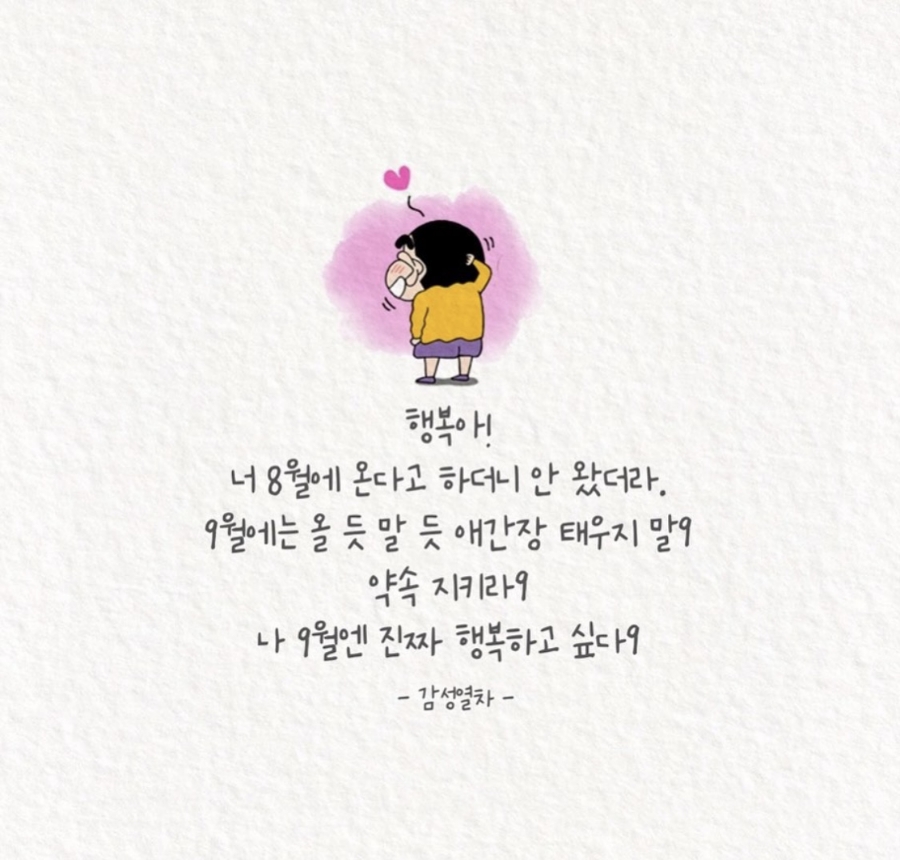 행복아!
너 8월에 온다고 하더니 안 왔더라.
9월에는 올 듯 말 듯 애간장 태우지 말9
약속 지키라9
나 9월엔 진짜 행복하고 싶다9
- 감성열차 -